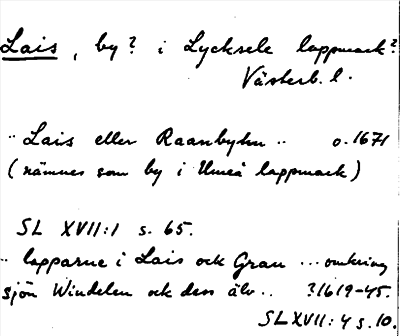 Lais, by? i Lycksele lappmark?
Västerb. l.
.. Lais eller Raanbyhn .. o. 1671
(nämnes som by i Umeå lappmark)
SL XVII:1 s. 65.
.. lapparne i Lais och Gran ... omkring
sjön Windelen och dess älv .. ?1619-45.
SL XVII: 4 s. 10.